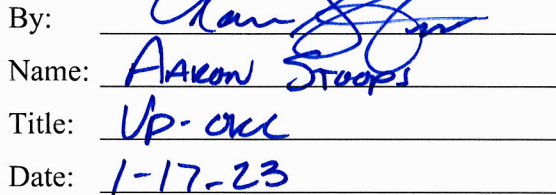 By:
Name: AARON STOOPS
Title: VP - OKC
Date: 1-17-23